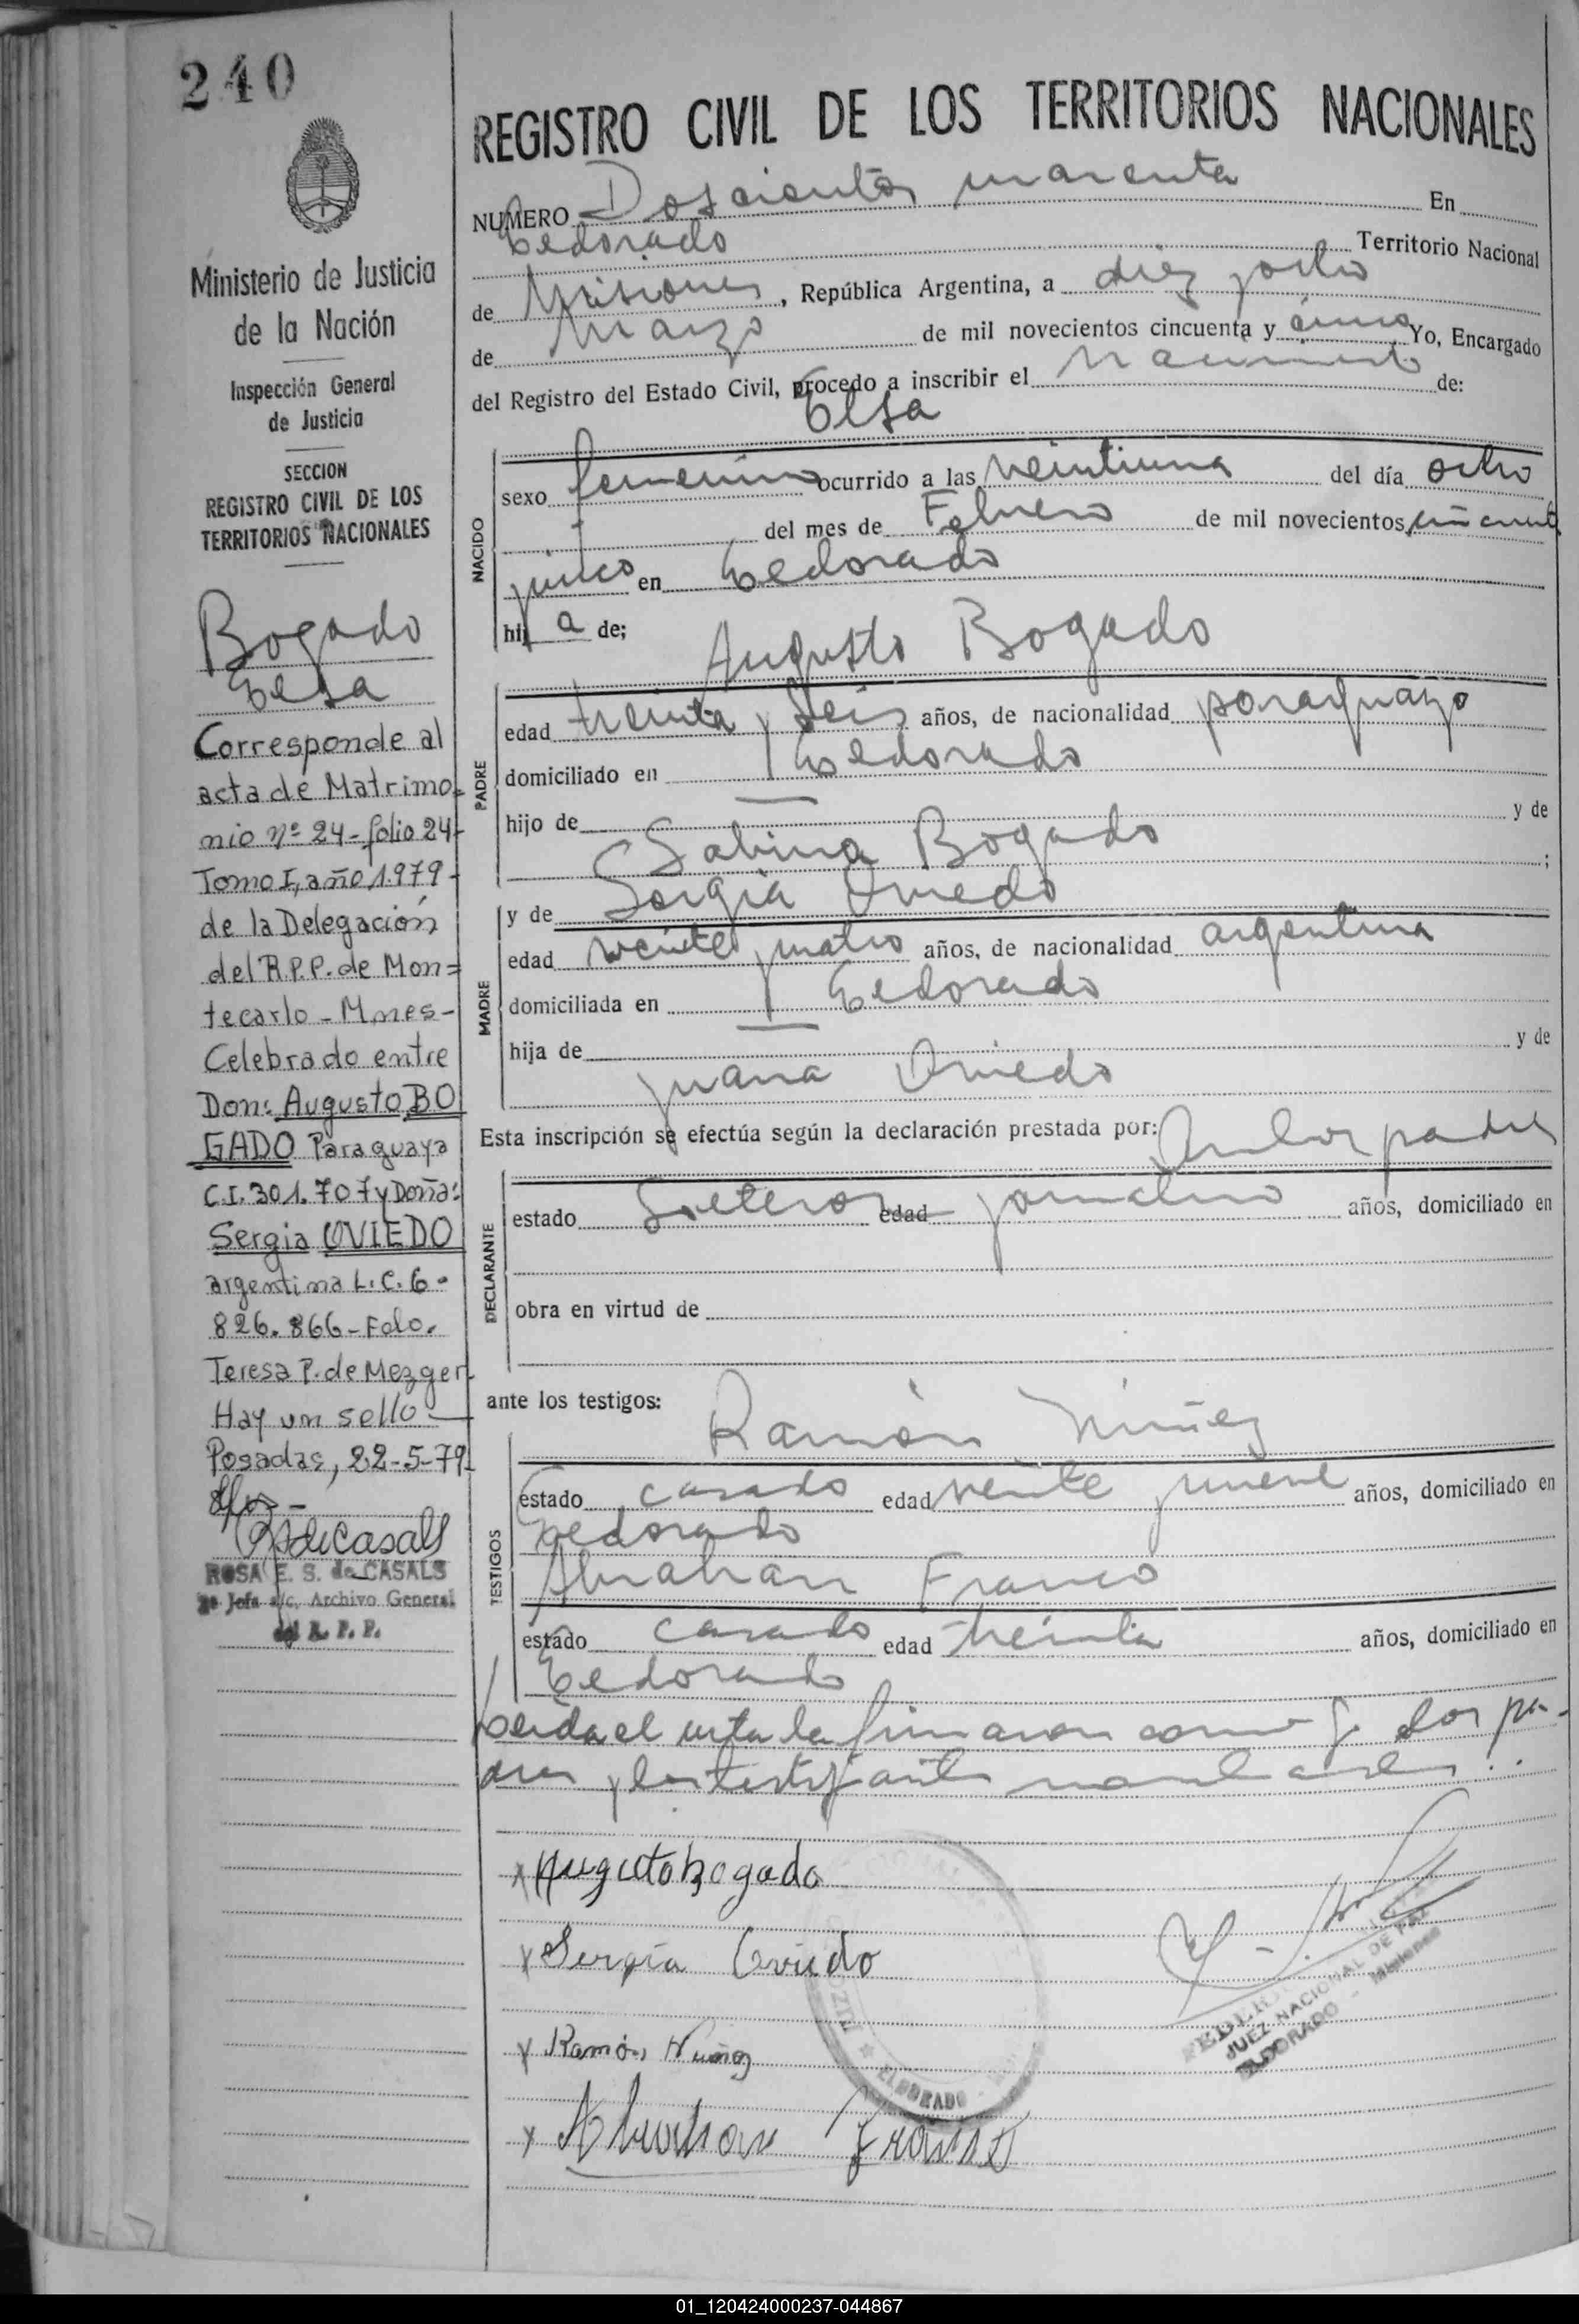 240
Ministerio de Justicia
de la Nación
Inspección General
de Justicia
SECCION
REGISTRO CIVIL DE LOS
TERRITORIOS NACIONALES
Bogado
Elsa
Corresponde al
acta de Matrimo=
nio nº 24-folio 24-
Tomo I, año 1.979-
de la Delegación
del R.P.P. de Mon=
tecarlo - Mnes-
Celebrado entre
Don: Augusto BO
GADO Paraguaya
C.I. 301.707 y Doña:
Sergia OVIEDO
argentina L.C. 6-
826.866-Fdo.
Teresa P. de Mezger
Hay un sello
Posadas, 22-5-79
ROSA E. S. de CASALS
2ª Jefa a/c. Archivo General
del R. P. P.
REGISTRO CIVIL DE LOS TERRITORIOS NACIONALES
NUMERO Doscientos cuarenta En
Eldorado Territorio Nacional
de Misiones, República Argentina, a diez y ocho
de Marzo de mil novecientos cincuenta y cinco Yo, Encargado
del Registro del Estado Civil, procedo a inscribir el nacimiento de:
Elsa
NACIDO
sexo femenino ocurrido a las veintiuna del día ocho
del mes de Febrero de mil novecientos cincuenta
y cinco en Eldorado
hija de;
Augusto Bogado
PADRE
edad treinta y seis años, de nacionalidad paraguayo
domiciliado en Eldorado
hijo de — y de
Sabina Bogado ;
y de Sergia Oviedo
MADRE
edad veinte y cuatro años, de nacionalidad argentina
domiciliada en Eldorado
hija de — y de
Juana Oviedo
Esta inscripción se efectúa según la declaración prestada por: Ambos padres
DECLARANTE
estado Solteros edad jornalero años, domiciliado en
obra en virtud de
ante los testigos:
Ramón Núñez
TESTIGOS
estado casado edad veinte y nueve años, domiciliado en
Eldorado
Abrahan Franco
estado casado edad treinta años, domiciliado en
Eldorado
Leida el acta la firmaron conmigo los pa-
dres y los testigos antes nombrados.
x Augusto Bogado
x Sergia Oviedo
x Ramón Nuñez
x Abrahan Franco
ELDORADO
JUEZ NACIONAL DE PAZ
ELDORADO - Misiones
01_120424000237-044867